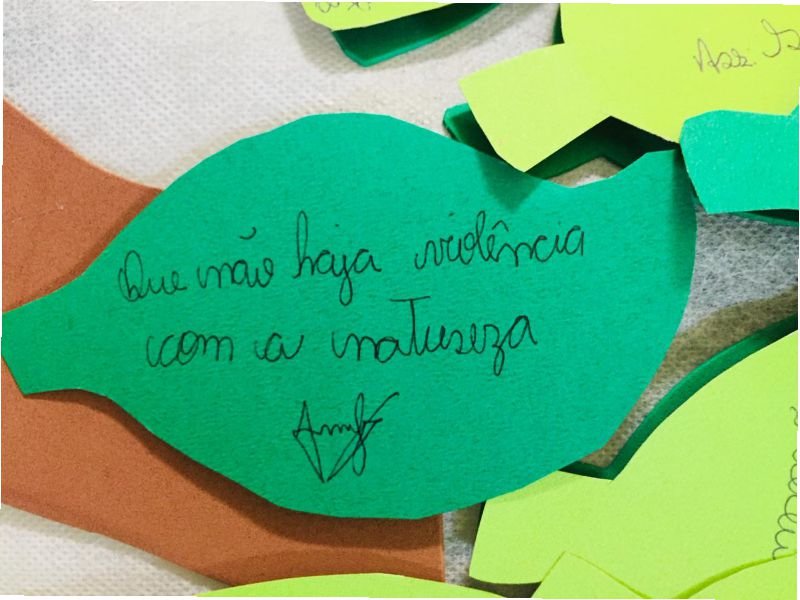 Que não haja violência
com a natureza